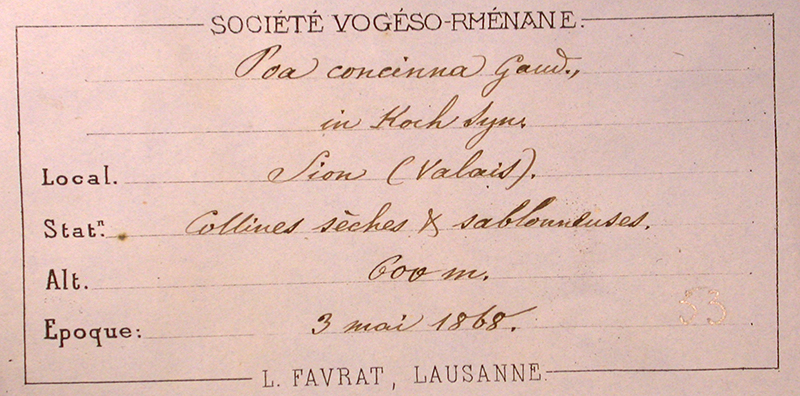 SOCIÉTÉ VOGÉSO-RHÉNANE.
Poa concinna Gaud.,
in Koch Syn.
Local. Sion (Valais).
Statn. Collines sèches & sablonneuses.
Alt. 600 m.
Epoque: 3 mai 1868.
33
L. FAVRAT, LAUSANNE.